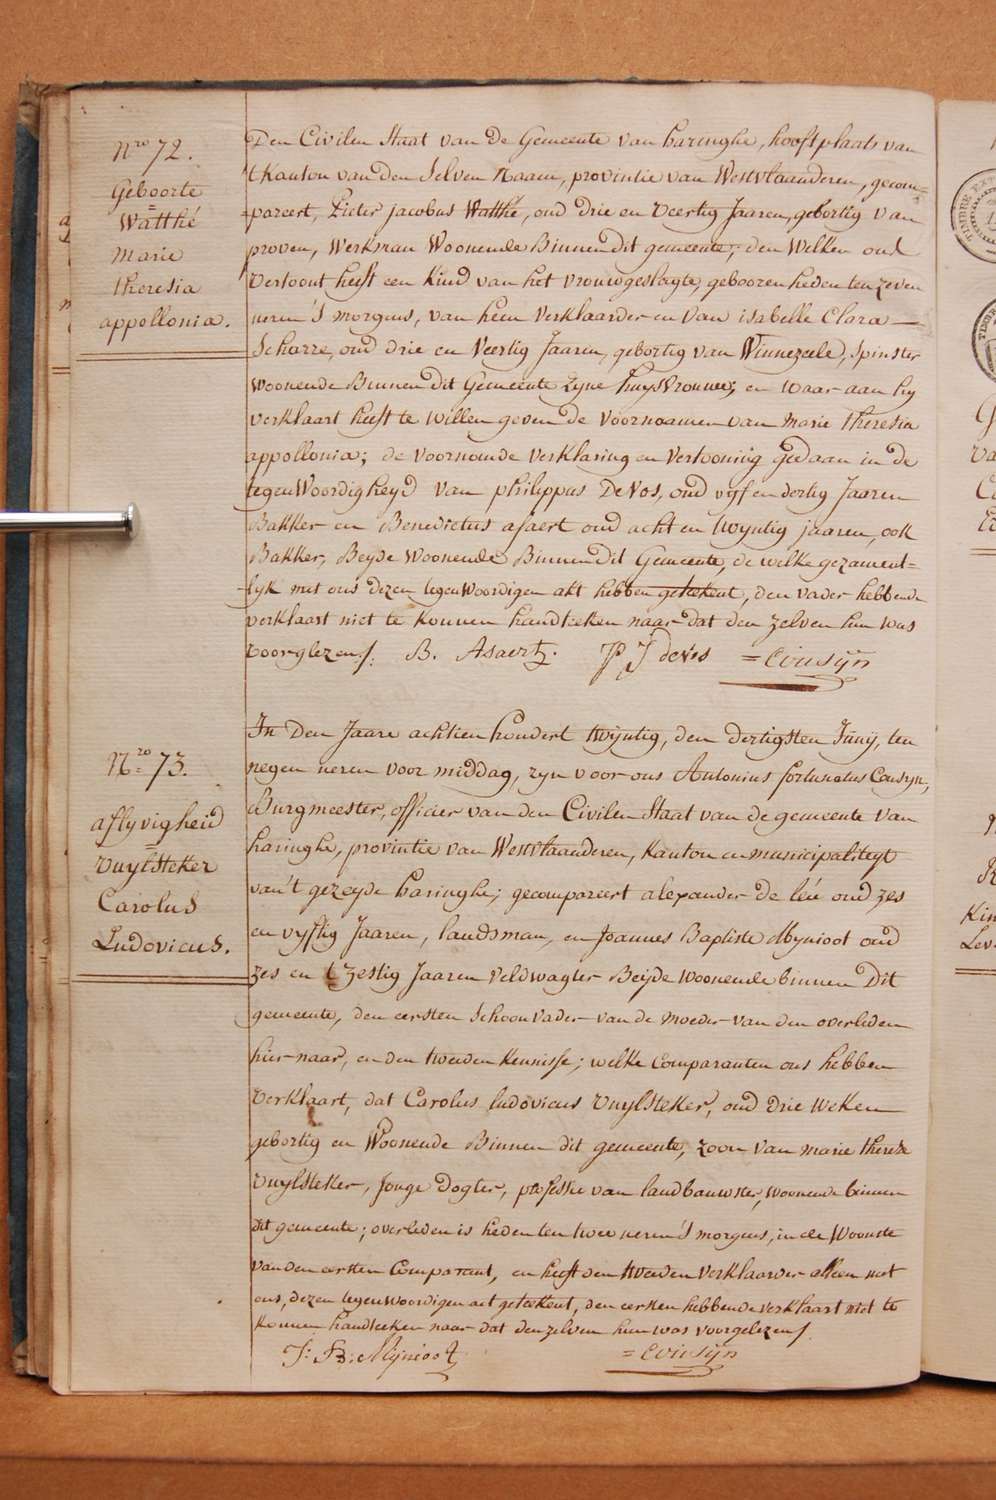 Nro 72.
Geboorte
=
Watthé
Marie
theresia
appollonia.
Den Civilen Staat van de Gemeente van haringhe, hooftplaats van
't Kanton van den Selven Naam, provintie van Westvlaanderen, gecom=
=pareert, Pieter jacobus Watthé, oud drie en Veertig Jaaren, gebortig van
proven, Werkman Woonende Binnen dit gemeente, den Welken ons
Vertoont heeft een Kind van het vrouwgeslagte, geboozen heden ten zeven
ueren 's morgens, van hem Verklaarder en van isabelle Clara
Scharre, oud drie en Veertig Jaaren, gebortig van Winnezeele, Spinster
Woonende Binnen dit Gemeente Zyne huysvrouwe; en waar aan hy
verklaart heeft te Willen geven de Voornaamen van Marie theresia
appollonia; de voornoemde verklaring en vertooning gedaan in de
tegenWoordigheyd van philippus DeVos, oud vyf en dertig Jaaren
Bakker en Benedictus asaert oud acht en twyntig jaaren, ook
Bakker, Beyde Woonende Binnen dit Gemeente, de welke gezament=
=lyk met ons dezen tegenWoordigen akt hebben geteekent, den vader hebbende
verklaart niet te konnen handteeken naar dat den zelven hun was
voorglezen/. B. Asaert. P J devos = Cousÿn
Nro 73.
aflyvigheid
=
Vuylsteker
Carolus
Ludovicus.
In Den Jaare achtien hondert twyntig, den dertigsten Junÿ, ten
negen ueren voor middag, zyn voor ons Antonius fortunatus Cousyn,
Burgmeester, officier van den Civilen Staat van de gemeente van
haringhe, provintie van Westvlaanderen, Kanton en municipaliteyt
van 't gezeyde haringhe; gecompareert alexander de léu oud zes
en vyftig Jaaren, landsman, en Joannes Baptiste Mynioot oud
zes en t zestig Jaaren Veldwagter Beyde woonende binnen Dit
gemeente, den eersten Schoonvader van de moeder van den overleden
hier naar, en den tweeden kennisse; welke Comparanten ons hebben
Verklaart, dat Carolus ludovicus Vuylsteker, oud drie weken
gebortig en Woonende Binnen dit gemeente, zoon van marie therese
Vuylsteker, Jonge Dogter, professie van landbauwster, woonende binnen
dit gemeente; overleden is heden ten twee ueren 's morgens, in de Woonste
van den eersten Comparant, en heeft den tweeden Verklaarder alleen met
ons, dezen tegenwoordigen act geteekent, den eersten hebbende verklaart niet te
konnen handteeken naar dat den zelven hun was voorgelezen/.
J: B: Mÿnioot = Cousÿn